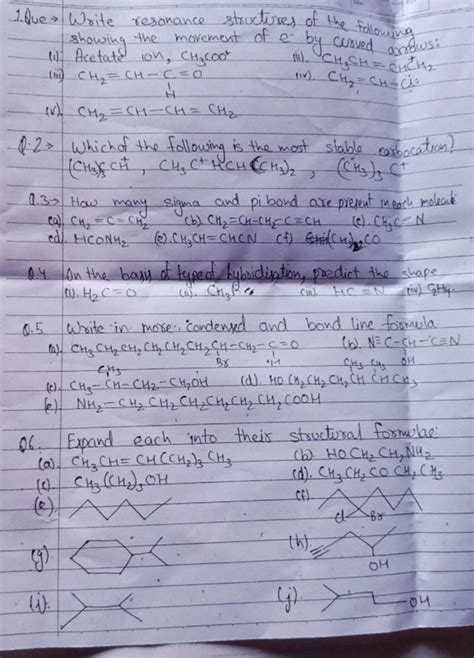 1. Que → Write resonance structures of the following
showing the movement of e- by curved arrows:
(i) Acetate ion, CH3COO+ iii. CH3CH=CHCH2
(iii) CH2=CH-C=O (iv). CH2=CH-Cl:
H
(v). CH2=CH-CH=CH2
Q.2 → Which of the following is the most stable carbocation?
(CH3)3CH+, CH3C+HCH(CH3)2, (CH3)3C+
Q.3 → How many sigma and pi bond are present in each molecule
(a). CH2=C=CH2 (b). CH2=CH-CH2-C≡CH (c). CH3C=N
(d). HCONH2 (e). CH3CH=CHCN (f) (CH3)2CO
Q.4 On the basis of type of hybridization, predict the shape
(i). H2C=O (ii). CH3F (iii) HC≡N (iv). C2H4
Q.5 Write in more condensed and bond line formula
(a). CH3CH2CH2CH2CH2CH2CH-CH2-C=O (b). N≡C-CH-C≡N
Br H OH
CH3 CH3 CH3
(c). CH3-CH-CH2-CH2OH (d). HO CH2CH2CH2CH CHCH3
(e). NH2-CH2CH2CH2CH2CH2CH2COOH
Q6. Expand each into their structural formulae:
(a). CH3CH=CH(CH2)3CH3 (b). HO CH2CH2NH2
(c) CH3(CH2)3OH (d). CH3CH2COCH2CH3
(e) (f)
Cl Br
(g) (h).
OH
(i). (j).
OH